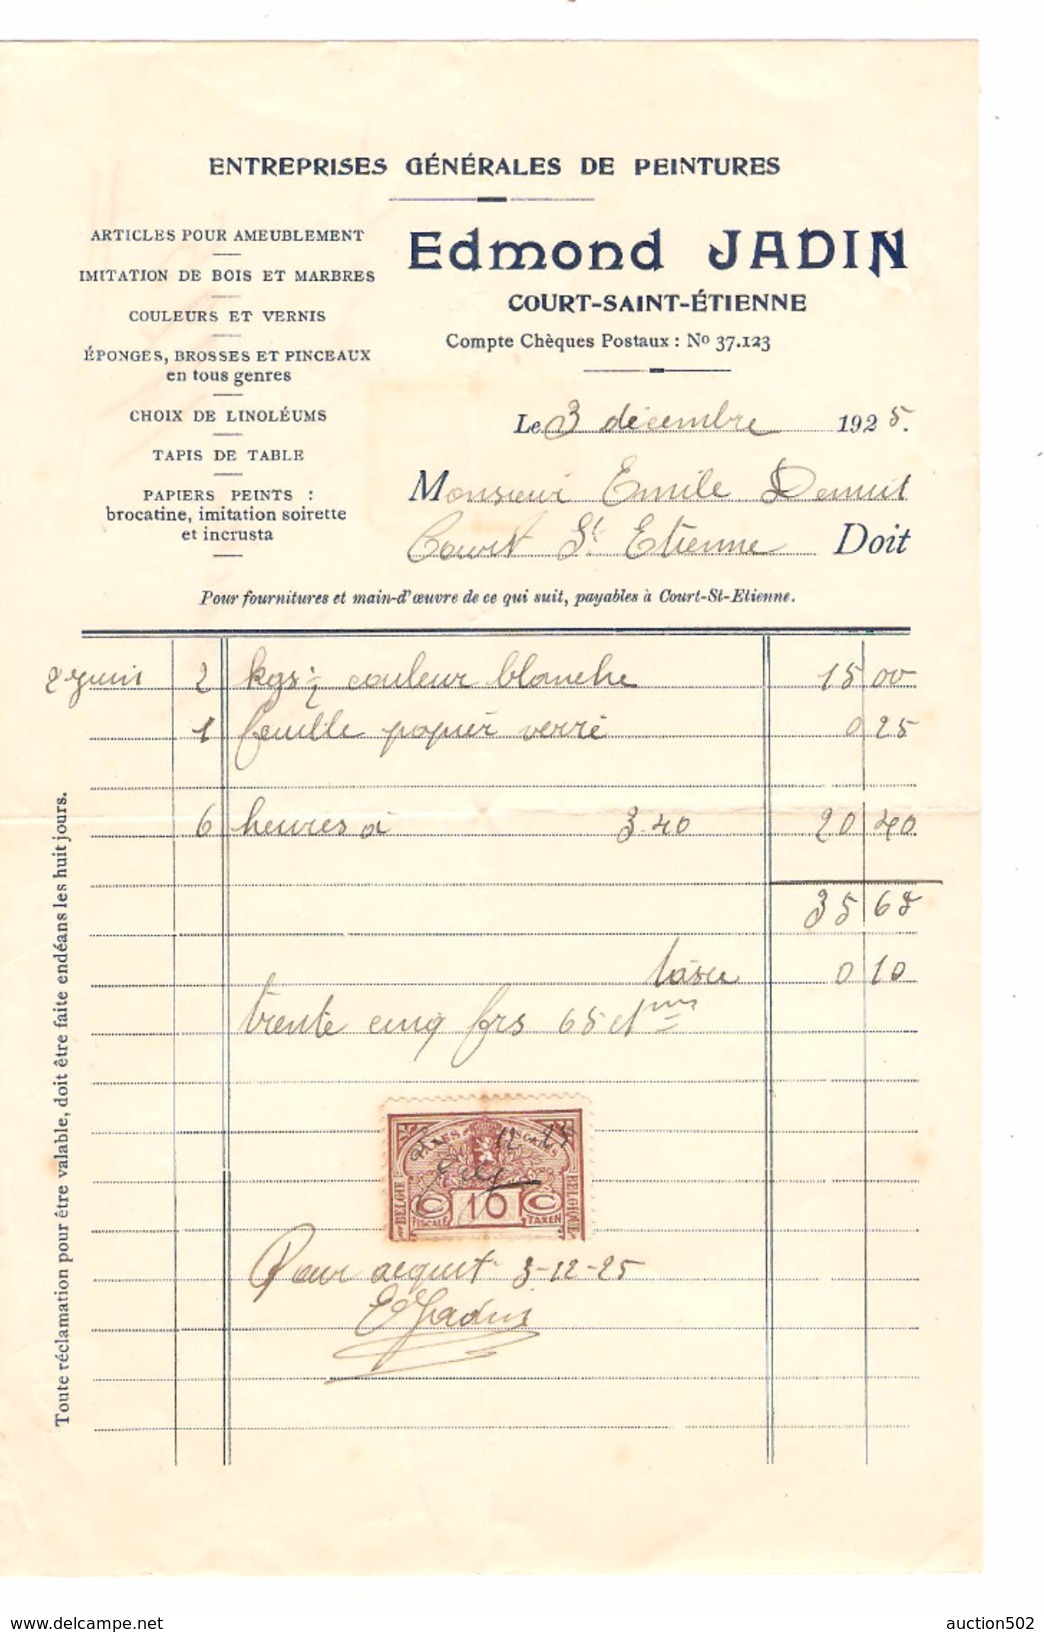 ENTREPRISES GÉNÉRALES DE PEINTURES
ARTICLES POUR AMEUBLEMENT
IMITATION DE BOIS ET MARBRES
COULEURS ET VERNIS
ÉPONGES, BROSSES ET PINCEAUX
en tous genres
CHOIX DE LINOLÉUMS
TAPIS DE TABLE
PAPIERS PEINTS :
brocatine, imitation soirette
et incrusta
Edmond JADIN
COURT-SAINT-ÉTIENNE
Compte Chèques Postaux : No 37.123
Le 3 décembre 1925.
Monsieur Emile
Court St Etienne Doit
Pour fournitures et main-d'œuvre de ce qui suit, payables à Court-St-Etienne.
juin 2 kgs couleur blanche 15 00
1 feuille papier verré 0 25
6 heures à 3.40 20 40
35 65
taxe 0 10
trente cinq frs 65 ctmes
12 25
BELGIE
BELGIQUE
C 10 C
FISCALE TAXEN
Pour acquit 3-12-25
E Jadin
Toute réclamation pour être valable, doit être faite endéans les huit jours.
auction502